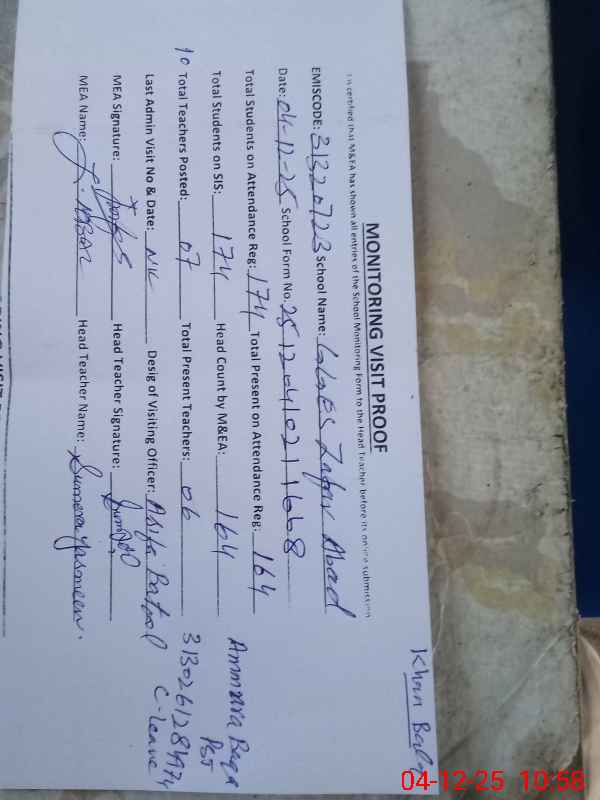 Khan Bala
MONITORING VISIT PROOF
It is certified that M&EA has shown all entries of the School Monitoring Form to the Head Teacher before its online submission
EMISCODE: 31320723 School Name: GGES Zafar Abad
Date: 04-12-25 School Form No. 2512041021 1668
Total Students on Attendance Reg: 174 Total Present on Attendance Reg: 164
Total Students on SIS: 174 Head Count by M&EA: 164
10 Total Teachers Posted: 07 Total Present Teachers: 06
Last Admin Visit No & Date: NIL Desig of Visiting Officer: Asifa Batool
MEA Signature: Head Teacher Signature:
MEA Name: J. IQBAL Head Teacher Name: Sumera Yasmeen.
Ammara Bega
PST
C-leave
04-12-25 10:58